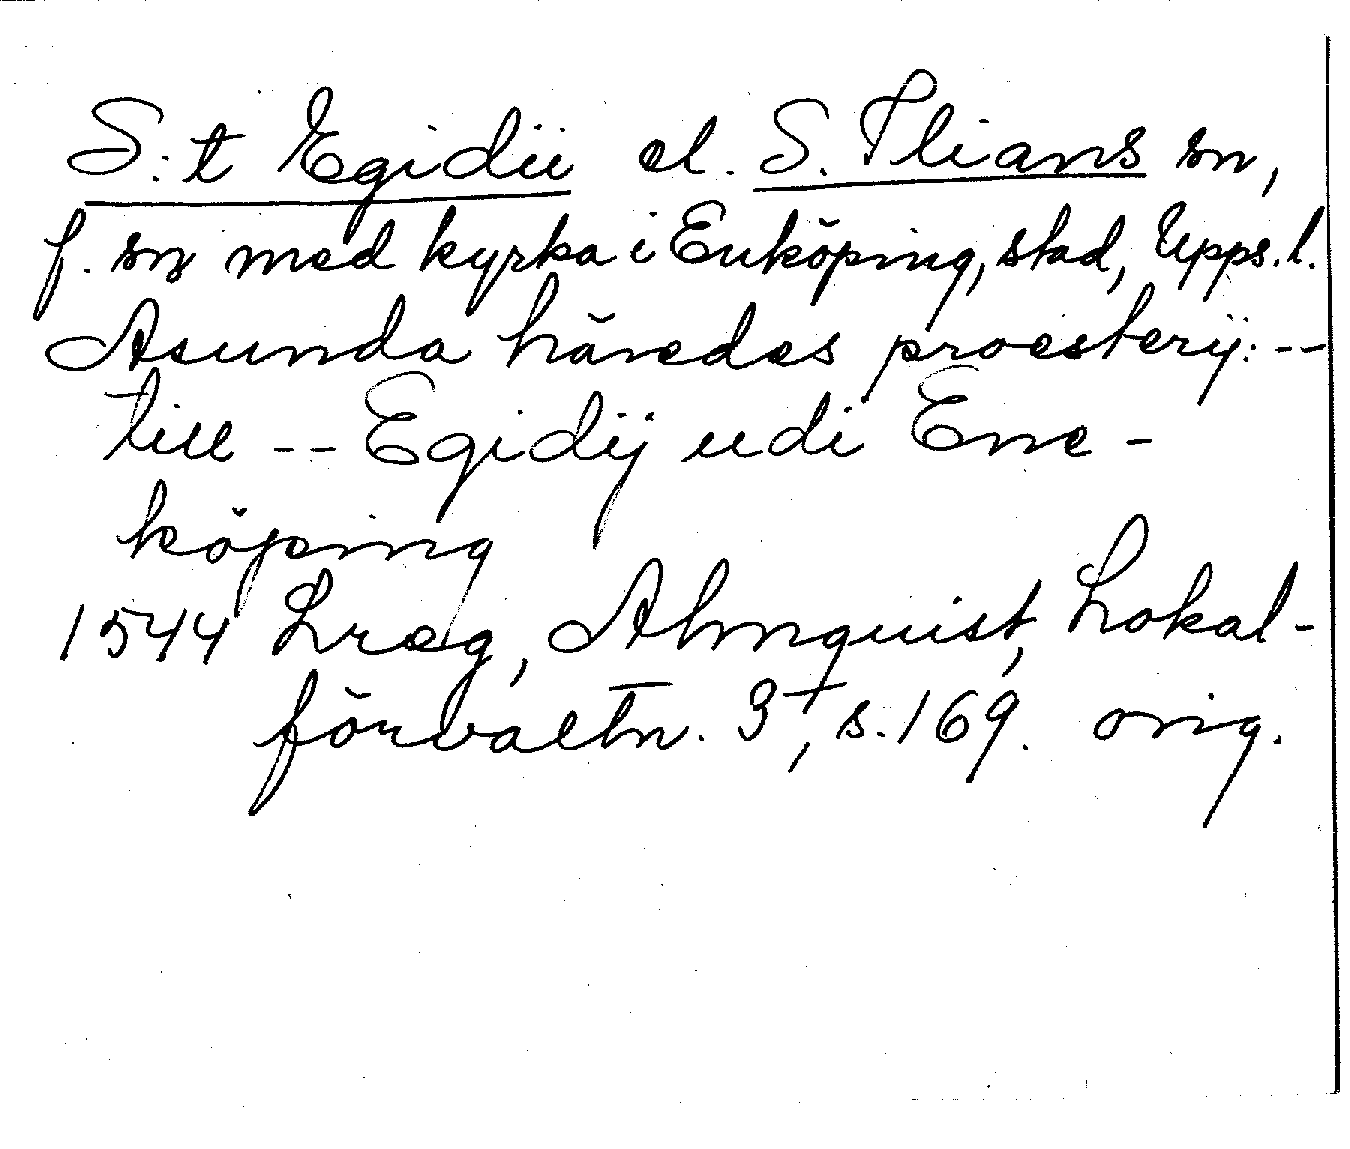 S:t Egidii el. S. Ilians sn,
f. sn med kyrka i Enköping, stad, Upps. l.
Asunda häredes proesterij: --
till -- Egidij udi Ene-
köping
1544 Lreg, Almquist, Lokal-
förvaltn. 3, s. 169. orig.